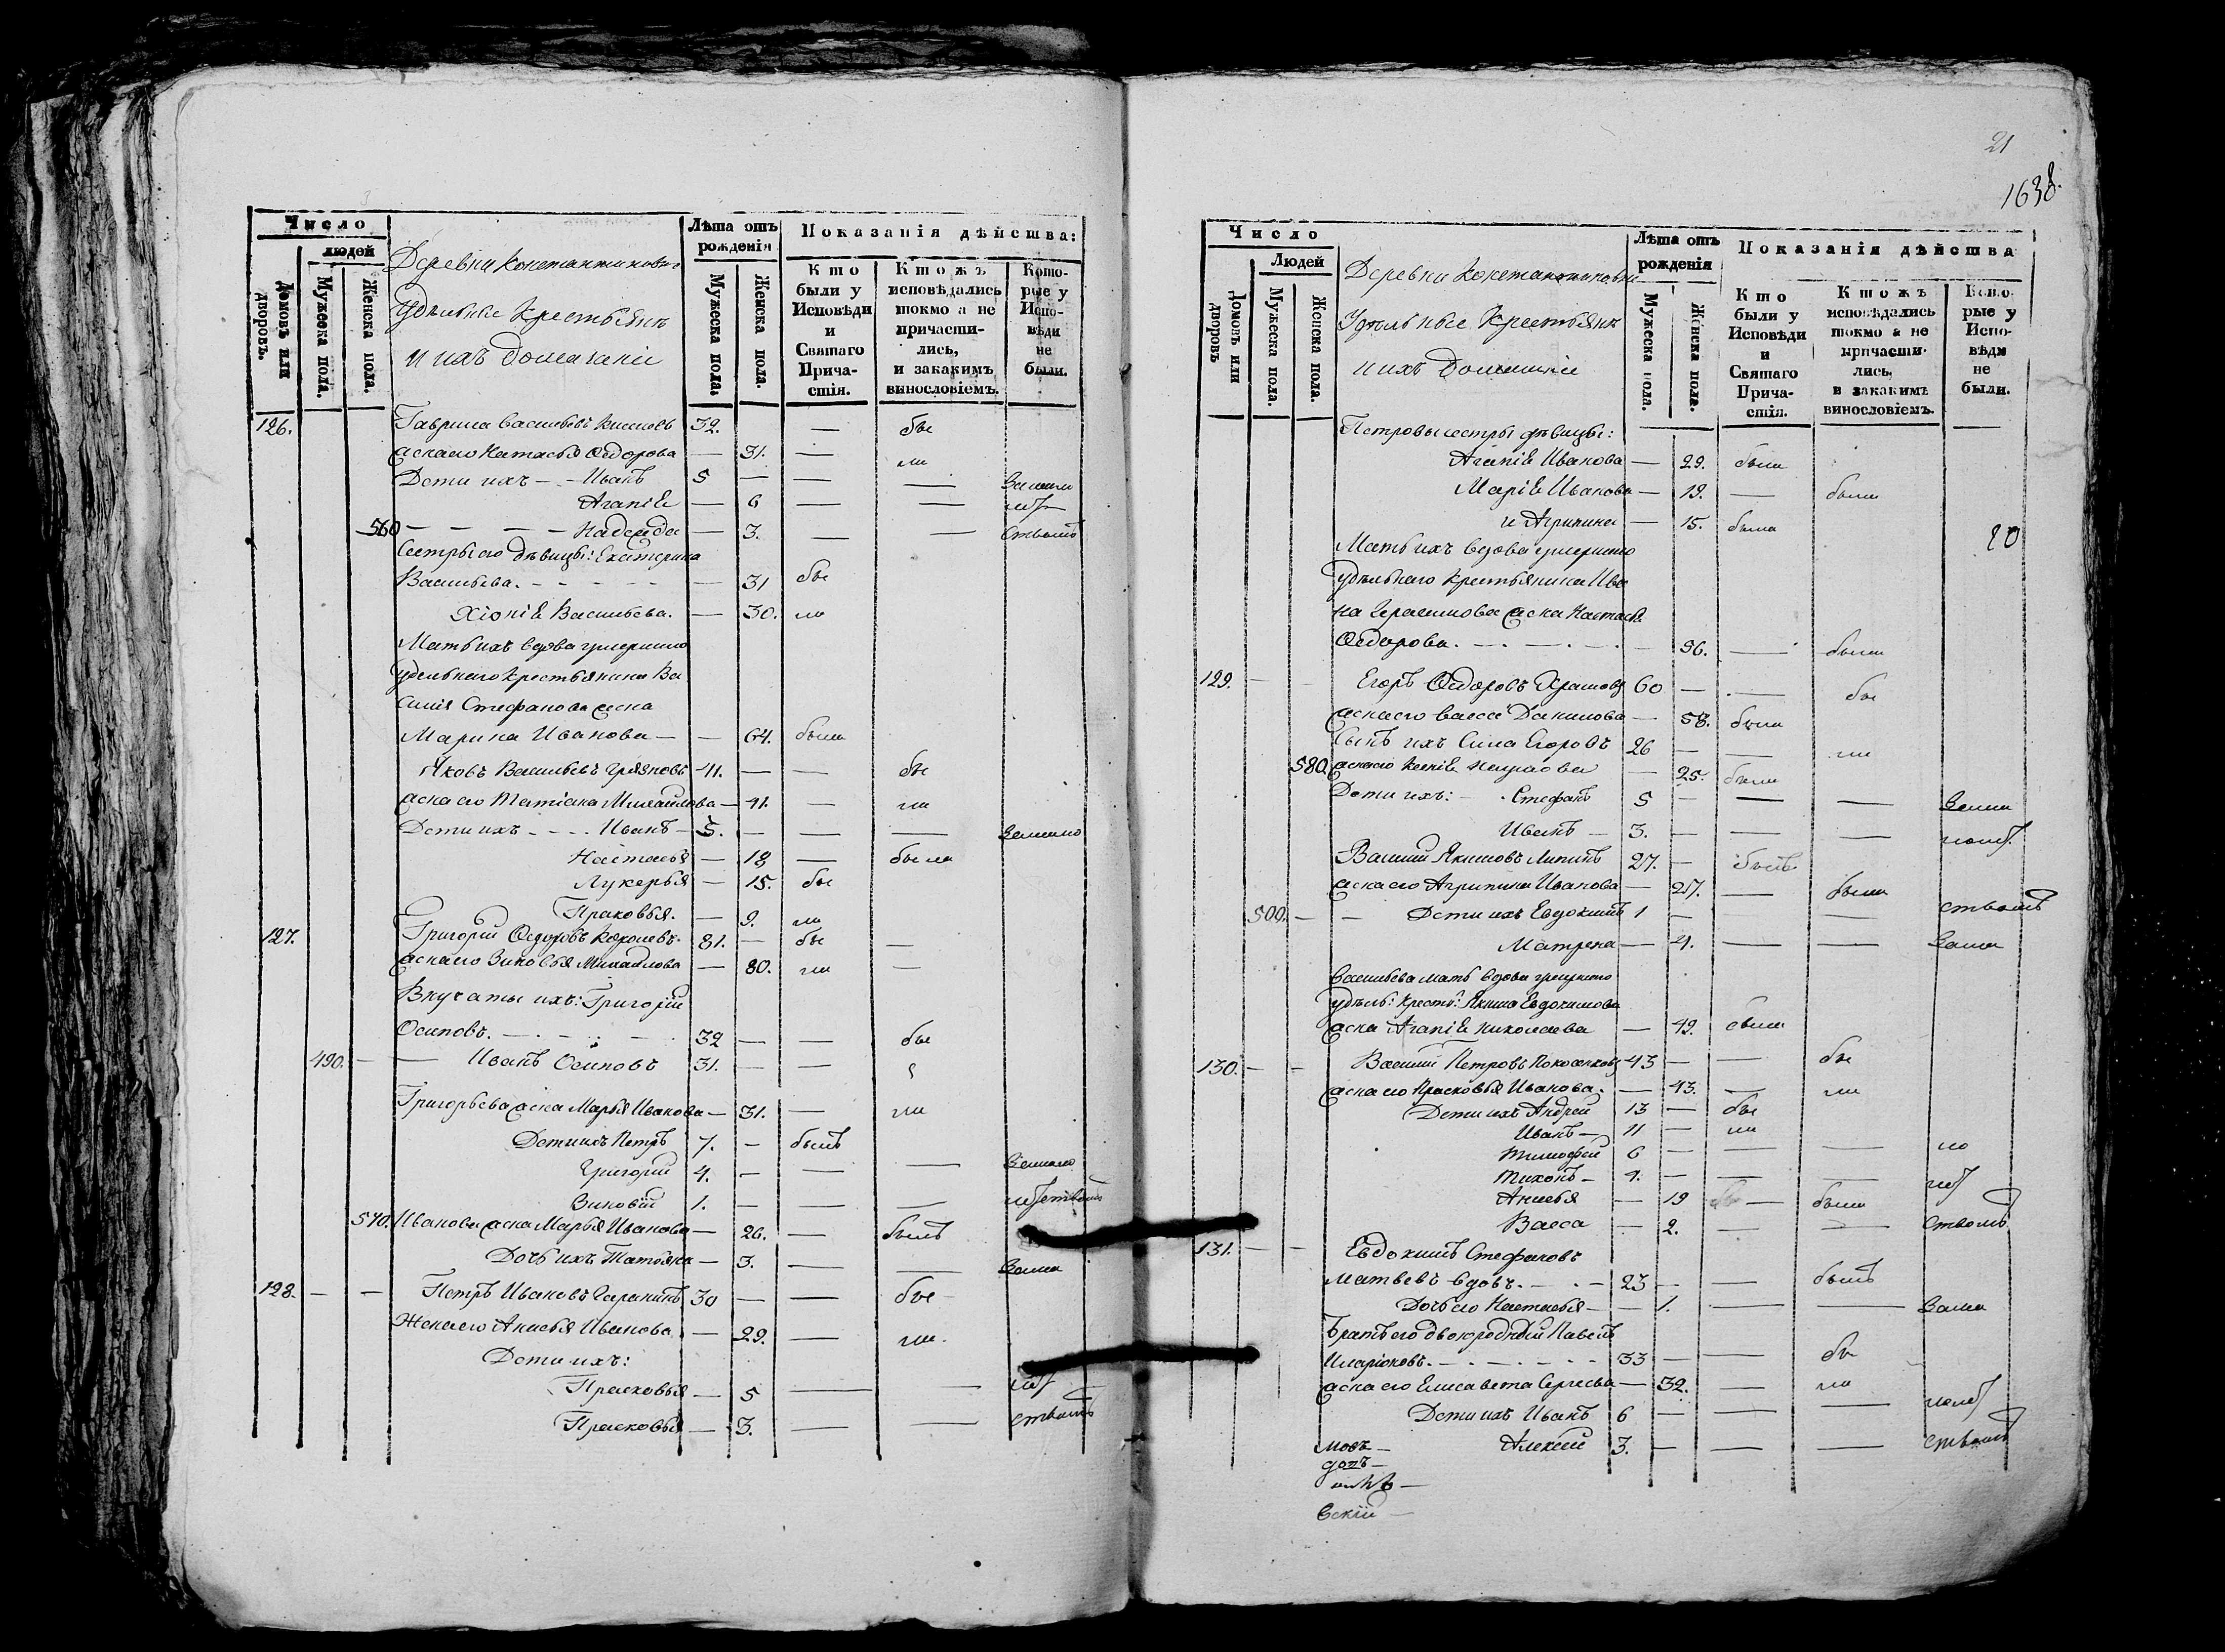 Число
людей
Домовъ или дворовъ.
Мужеска пола.
Женска пола.
Деревни Константиновки
Удѣльные Крестьяне
и ихъ домашніи
Лѣта отъ рожденія
Мужеска пола.
Женска пола.
Показанія дѣйства:
Кто были у Исповѣди и Святаго Причастія.
Ктожъ исповѣдались токмо а не причастились, и закакимъ винословіемъ.
Которые у Исповѣди не были.
126. Гаврила Васильевъ 32. — бы
жена его Настасья Ѳедорова — 31. — ли
Дети ихъ — Иванъ 5 — — — За мало
Агапія — 6 — — лѣт
560 — — — Надежда — 3. — — ствомъ
Сестры его дѣвицы: Екатерина
Васильева. — 31 бы
Хіонія Васильева. — 30. ли
Мать ихъ вдова умершаго
удельнаго крестьянина Ва
силія Стефанова жена
Марина Иванова — — 64. была
Яковъ Васильевъ 41. — — бы
жена его Татіана Михайлова — 41. — ли
Дети ихъ — Иванъ — 5. — — — За мало
Настасья — 18 — была
Лукерья — 15. бы
Праковья. — 9. ли
127. Григорій Ѳедоровъ Королевъ. 81. — бы —
жена его Зиновья Михайлова — 80. ли —
Внучаты ихъ: Григорій
Осиповъ. 32 — — бы
490. — — Иванъ Осиповъ 31. — —
Григорьева жена Марья Иванова — 31. — ли
Дети ихъ Петръ 7. — былъ
Григорій 4. — — — За мало
Зиновій 1. — — — лѣтствомъ
570. Иванова жена Марья Иванова — 26. — была
Дочь ихъ Татьяна — 3. — — За ма
128. — — Петръ Ивановъ 30 — — бы
Жена его Анисья Иванова — 29. — ли.
Дети ихъ:
Прасковья — 5 — — лѣт
Прасковья — 3. — — ствомъ
21
1638.
Число
Людей
Домовъ или дворовъ
Мужеска пола.
Женска пола.
Деревни Константиновки
Удѣльные Крестьяне
и ихъ домашніи
Лѣта отъ рожденія
Мужеска пола.
Женска пола.
Показанія дѣйства
Кто были у Исповѣди и Святаго Причастія.
Ктожъ исповѣдались токмо а не причастились, и закакимъ винословіемъ.
Которые у Исповѣди не были.
Петровы сестры дѣвицы:
Агапія Иванова — 29. была
Марія Иванова — 19. — была
и Агрипина — 15. была
20
Мать ихъ вдова умершаго
удѣльнаго крестьянина Ива
на Герасимова жена Настасья
Ѳедорова. — 56. — была
129. — — Егоръ Ѳедоровъ 60 — — бы
жена его Васса Данилова — 58. была
Сынъ ихъ Сила Егоровъ 26 — — ли
580. жена его Ксенія — 25. была
Дети ихъ: — Стефанъ 5 — — — За ма
Иванъ — 3. — — — лолѣт.
Василій Якимовъ Липинъ 27. — былъ
жена его Агрипина Иванова — 27. — была
500. — — Дети ихъ Евдокимъ 1 — — ствомъ
Матрена — 4. — — За ма
Васильева мать вдова умершаго
удѣль: крест: Якима Евдокимова
жена Агапія Николаева — 49. была
130. — — Василій Петровъ 43 — — бы
жена его Прасковья Иванова. — 43. — ли
Дети ихъ Андрей 13 — бы
Иванъ — 11 — ли
Тимофей 6 — — — ло
Тихонъ — 4. — — — лѣт
Анисья — 19 — была
Васса — 2. — — ствомъ
131. — — Евдокимъ Стефановъ
Матвеевъ вдовъ. — 23 — — былъ
Дочь его Настасья — — 1. — — За ма
Братъ его двоюродный Павелъ
Иларіоновъ. 33 — — бы
жена его Елисавета Сергеева — 32. — ли
Дети ихъ Иванъ 6 — — — лолѣт
Алексей 3. — — — ствомъ